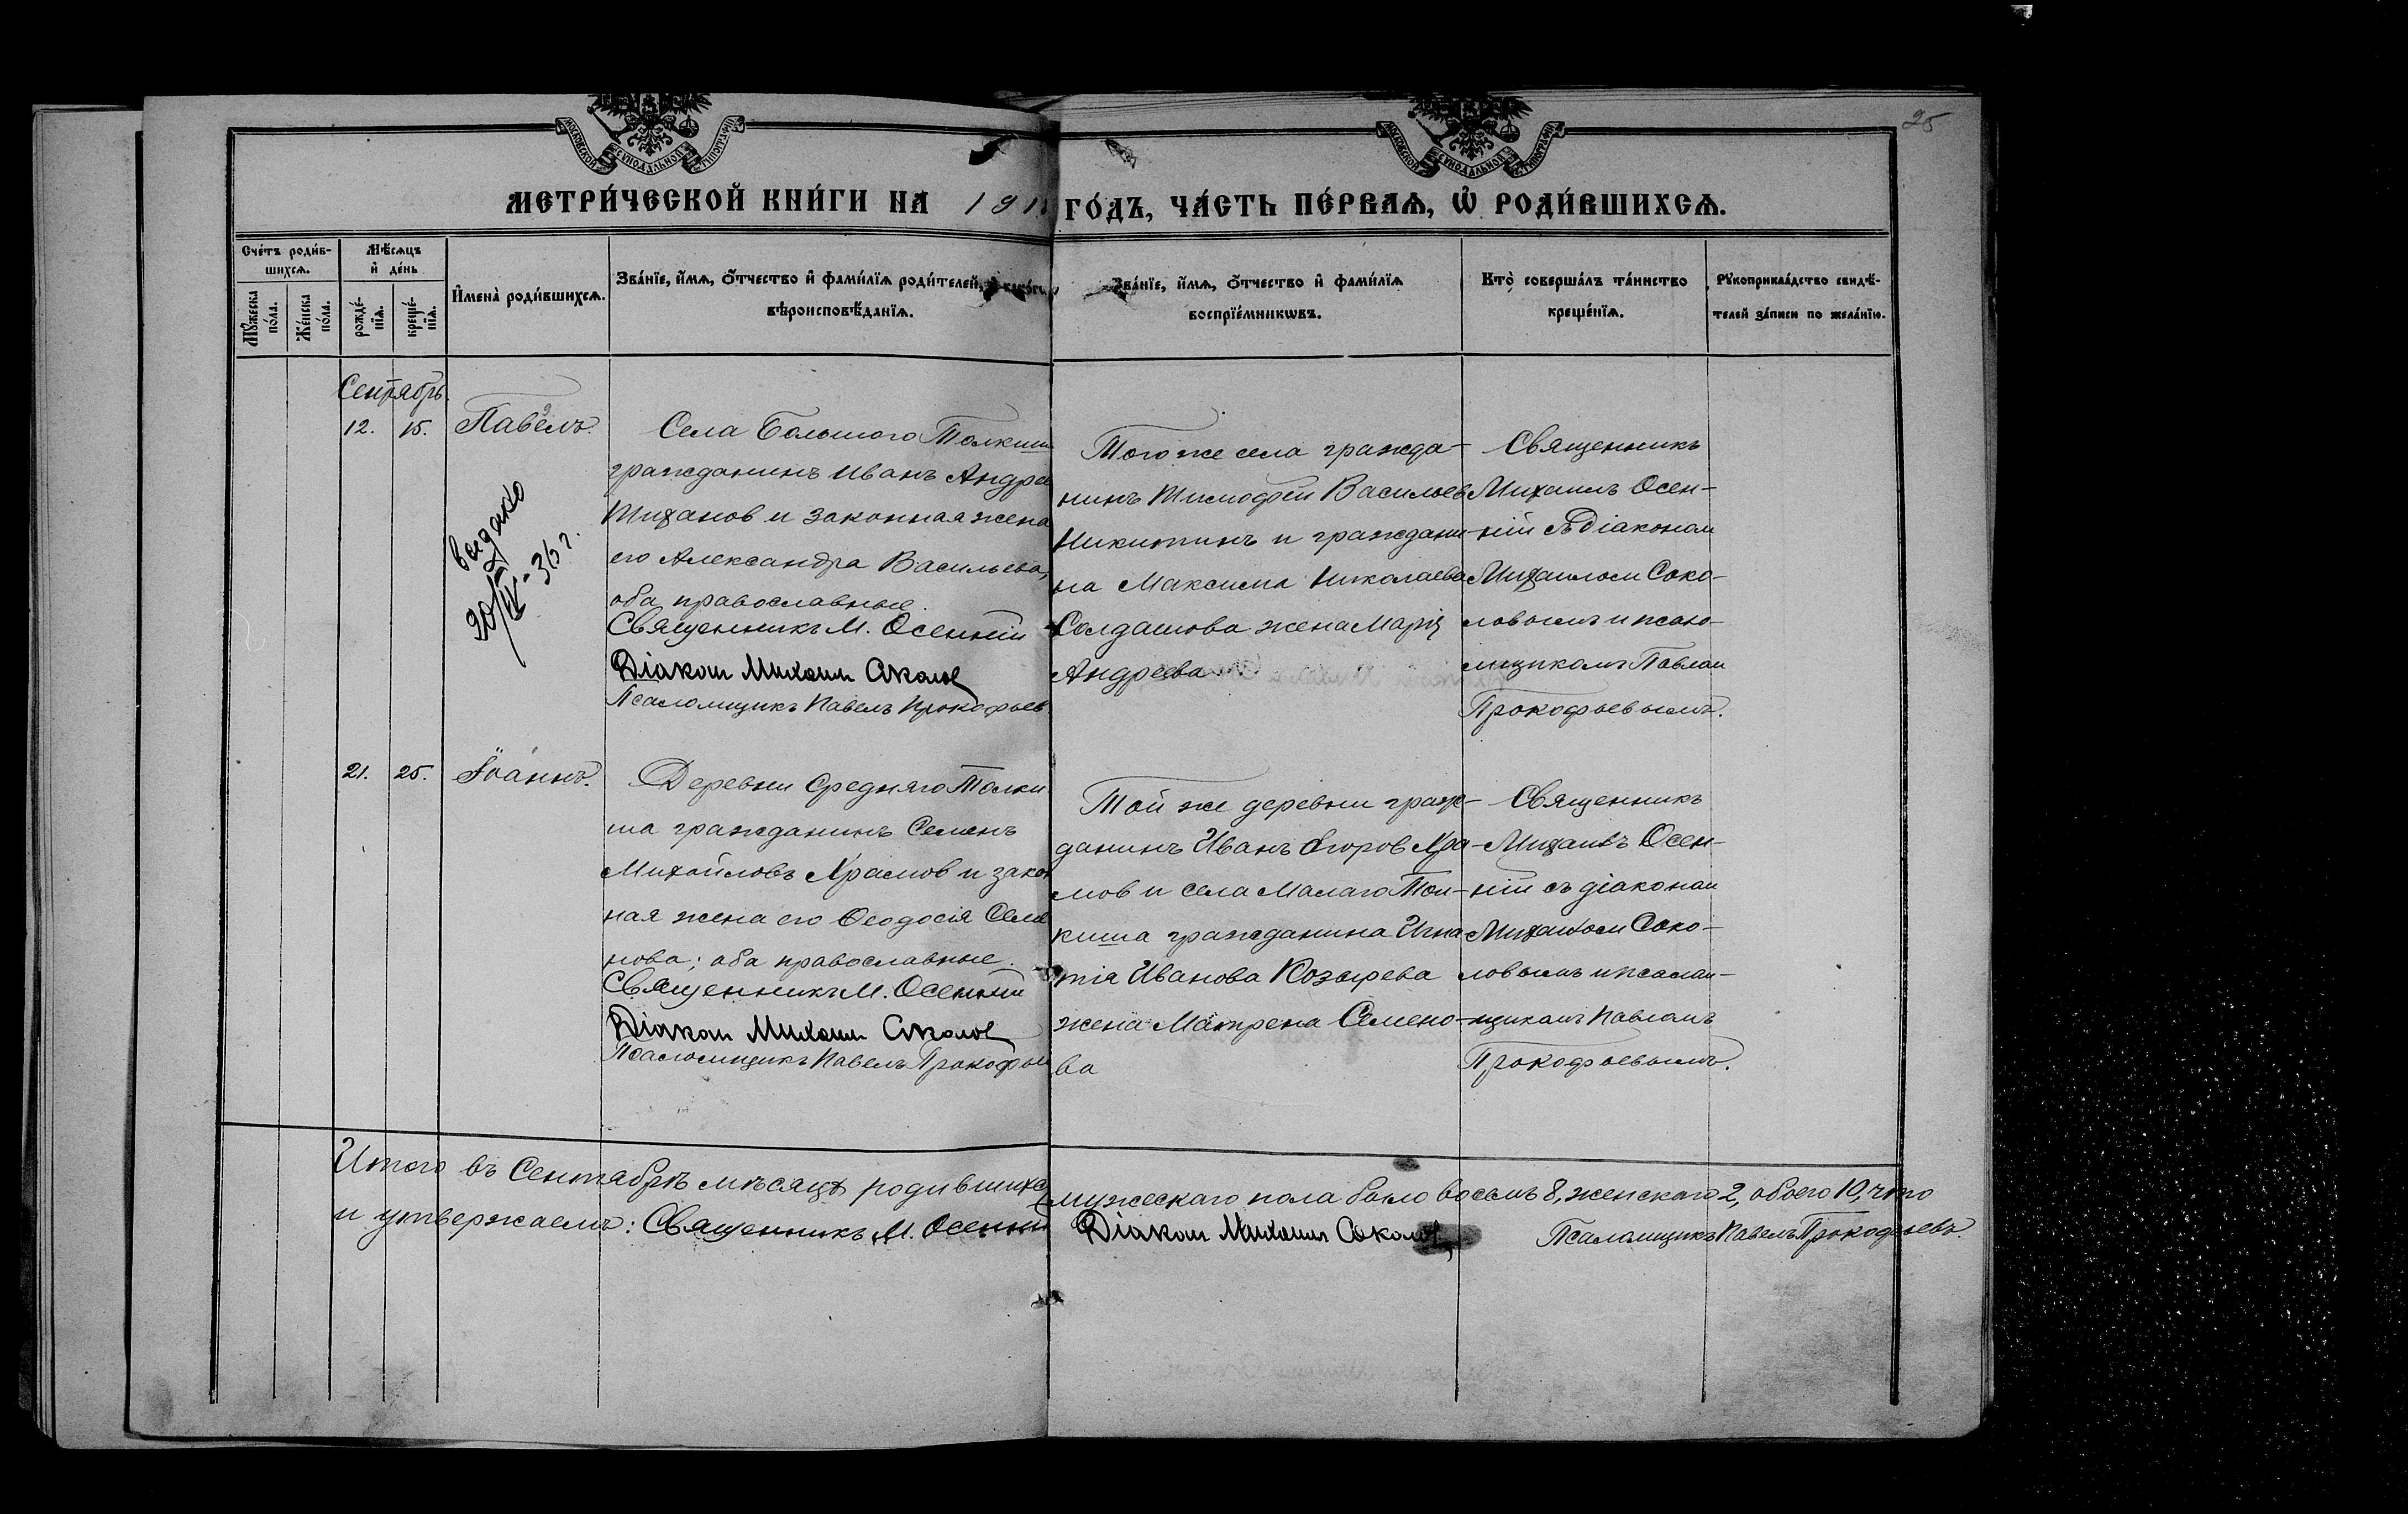 25
МОСКОВСКОЙ СѴНОДАЛЬНОЙ ТИПОГРАФІИ
МОСКОВСКОЙ СѴНОДАЛЬНОЙ ТИПОГРАФІИ
МЕТРИ́ЧЕСКОЙ КНИ́ГИ НА 191 ГО́ДЪ, ЧА́СТЬ ПЕ́РВАѦ, Ѡ҆ РОДИ́ВШИХСѦ.
Сче́тъ роди́в-
шихсѧ.
Мꙋ́жеска
по́ла.
Же́нска
по́ла.
Мѣ́сѧцъ
и҆ де́нь
рожде́-
нїѧ.
креще́-
нїѧ.
И҆мена̀ роди́вшихсѧ.
Зва́нїе, и҆́мѧ, ѻ҆́тчество и҆ фами́лїѧ роди́телей, и҆ како́гѡ
вѣроисповѣ́данїѧ.
Зва́нїе, и҆́мѧ, ѻ҆́тчество и҆ фами́лїѧ
воспрїе́мникѡвъ.
Кто̀ соверша́лъ та́инство
креще́нїѧ.
Рꙋкоприкла́дство свидѣ́-
телей за́писи по жела́нїю.
Сентябрь.
12. 15. Павелъ.
выдано
20/IV-36 г.
Села Большого Толкиш
гражданинъ Иванъ Андре
Тиханов и законная жена
его Александра Васильева,
оба православные.
Священникъ М. Осенній
Діакон Михаил Соколов
Псаломщикъ Павелъ Прокофьев
Того же села гражда-
нинъ Тимофей Васильев
Никитинъ и граждани
на Максима Николаева
Солдатова жена Марія
Андреева
Священникъ
Михаилъ Осен-
ній съ діаконом
Михаилом Соко-
ловымъ и псало-
мщикомъ Павлом
Прокофьевымъ.
21. 25. Іоаннъ.
Деревни Средняго Толки
ша гражданинъ Семенъ
Михайловъ Храмов и закон
ная жена его Ѳеодосія Семе
нова; оба православные.
Священникъ М. Осенній
Діакон Михаил Соколов
Псаломщикъ Павелъ Прокофьев
Той же деревни граж-
данинъ Иванъ Егоров Хра-
мов и села Малаго Тол-
киша гражданина Игна
тія Иванова Козырева
жена Матрена Семено-
ва
Священникъ
Михаилъ Осен-
ній съ діаконом
Михаилом Соко-
ловымъ и псалом-
щикомъ Павломъ
Прокофьевымъ.
Итого въ Сентябрѣ мѣсяцѣ родившихся мужескаго пола было восемь 8, женскаго 2, обоего 10, что
и утвержаемъ: Священникъ М. Осенній Діакон Михаил Соколов, Псаломщикъ Павелъ Прокофьевъ.